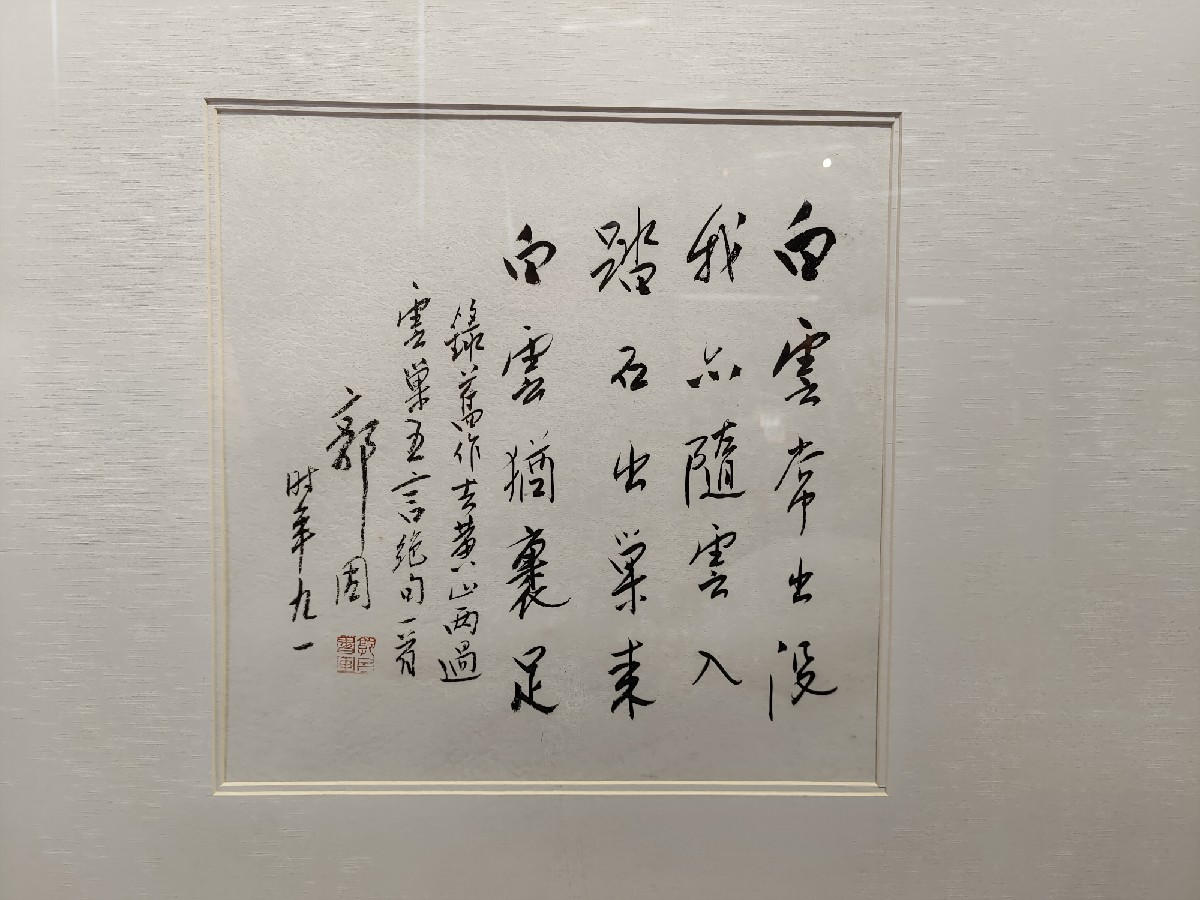 白雲常出没
我亦隨雲入
踏石出巢来
白雲猶裹足
錄舊作去黄山两過
雲巢五言絶句一首
郭固
时年九一